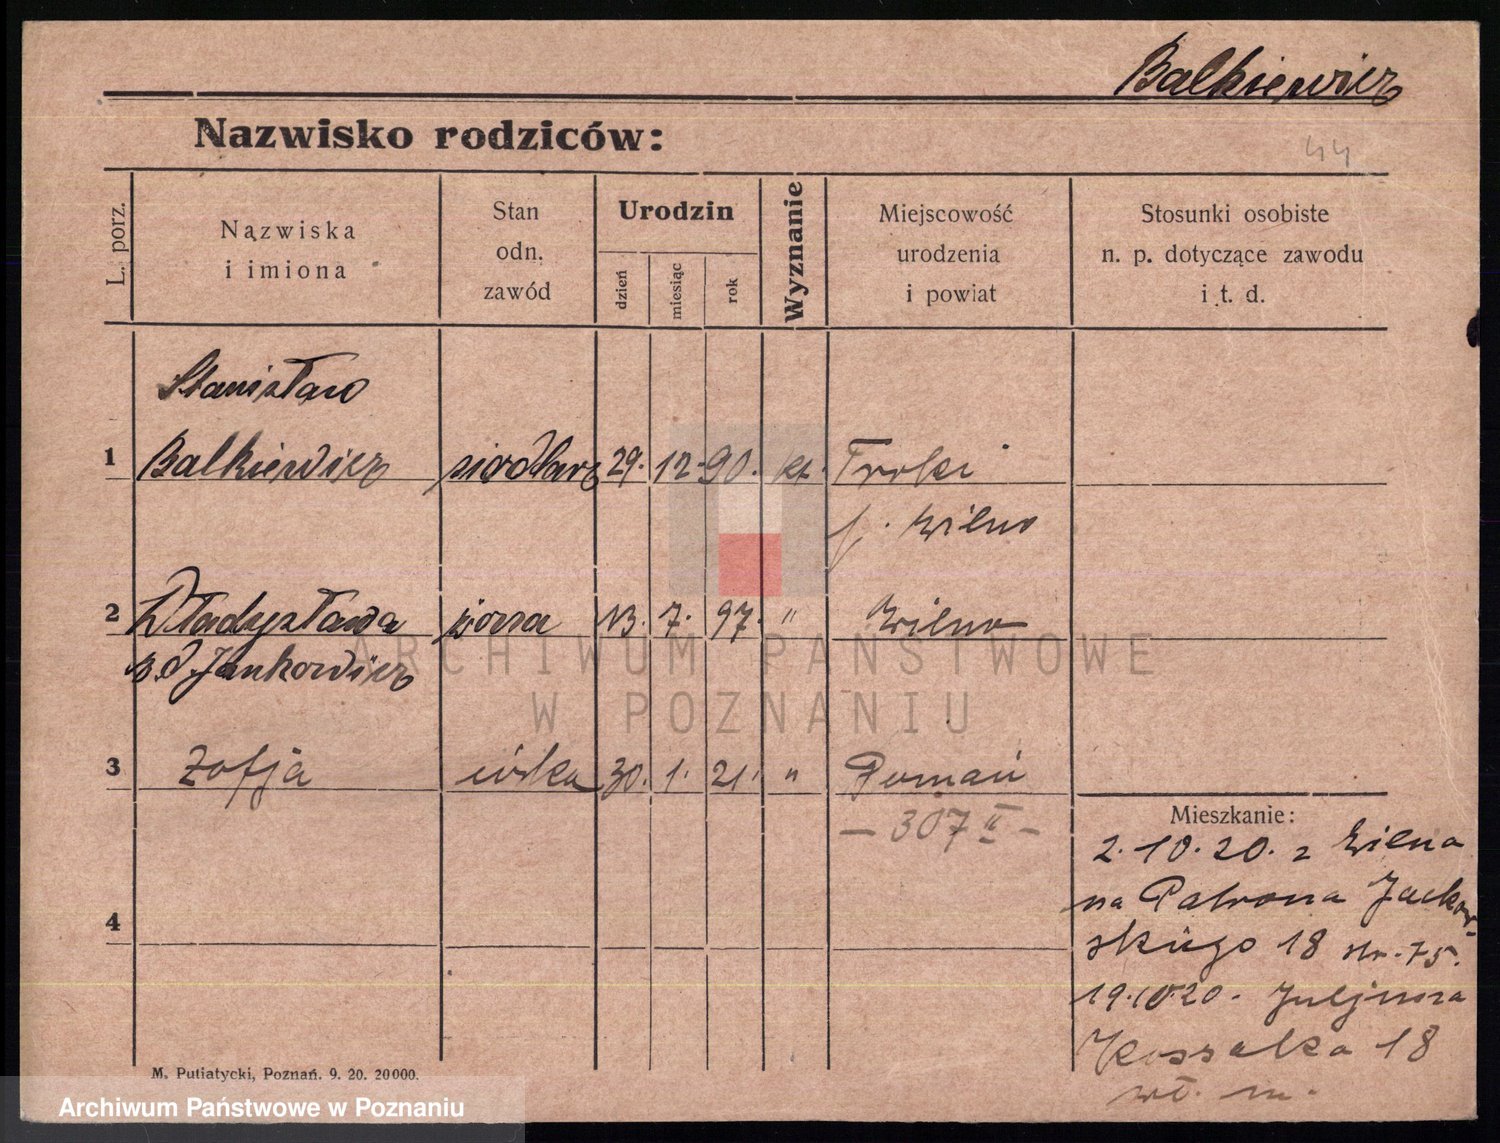 Balkiewicz
Nazwisko rodziców:
44
L. porz.
Nazwiska
i imiona
Stan
odn.
zawód
Urodzin
dzień
miesiąc
rok
Wyznanie
Miejscowość
urodzenia
i powiat
Stosunki osobiste
n. p. dotyczące zawodu
i t. d.
Stanisław
1 Balkiewicz siodlarz 29. 12. 90. kt. Troki
p. Wilno
2 Władysława żona 13. 7. 97. " Wilno
z d. Jankowicz
3 Zofja córka 30. 1. 21. " Poznań
— 307 II —
4
Mieszkanie:
2. 10. 20. z Wilna
na Patrona Jackow-
skiego 18 str. 75.
19.10.20. Juljusza
Kossaka 18
wł. m.
ARCHIWUM PAŃSTWOWE
W POZNANIU
M. Putiatycki, Poznań. 9. 20. 20000.
Archiwum Państwowe w Poznaniu